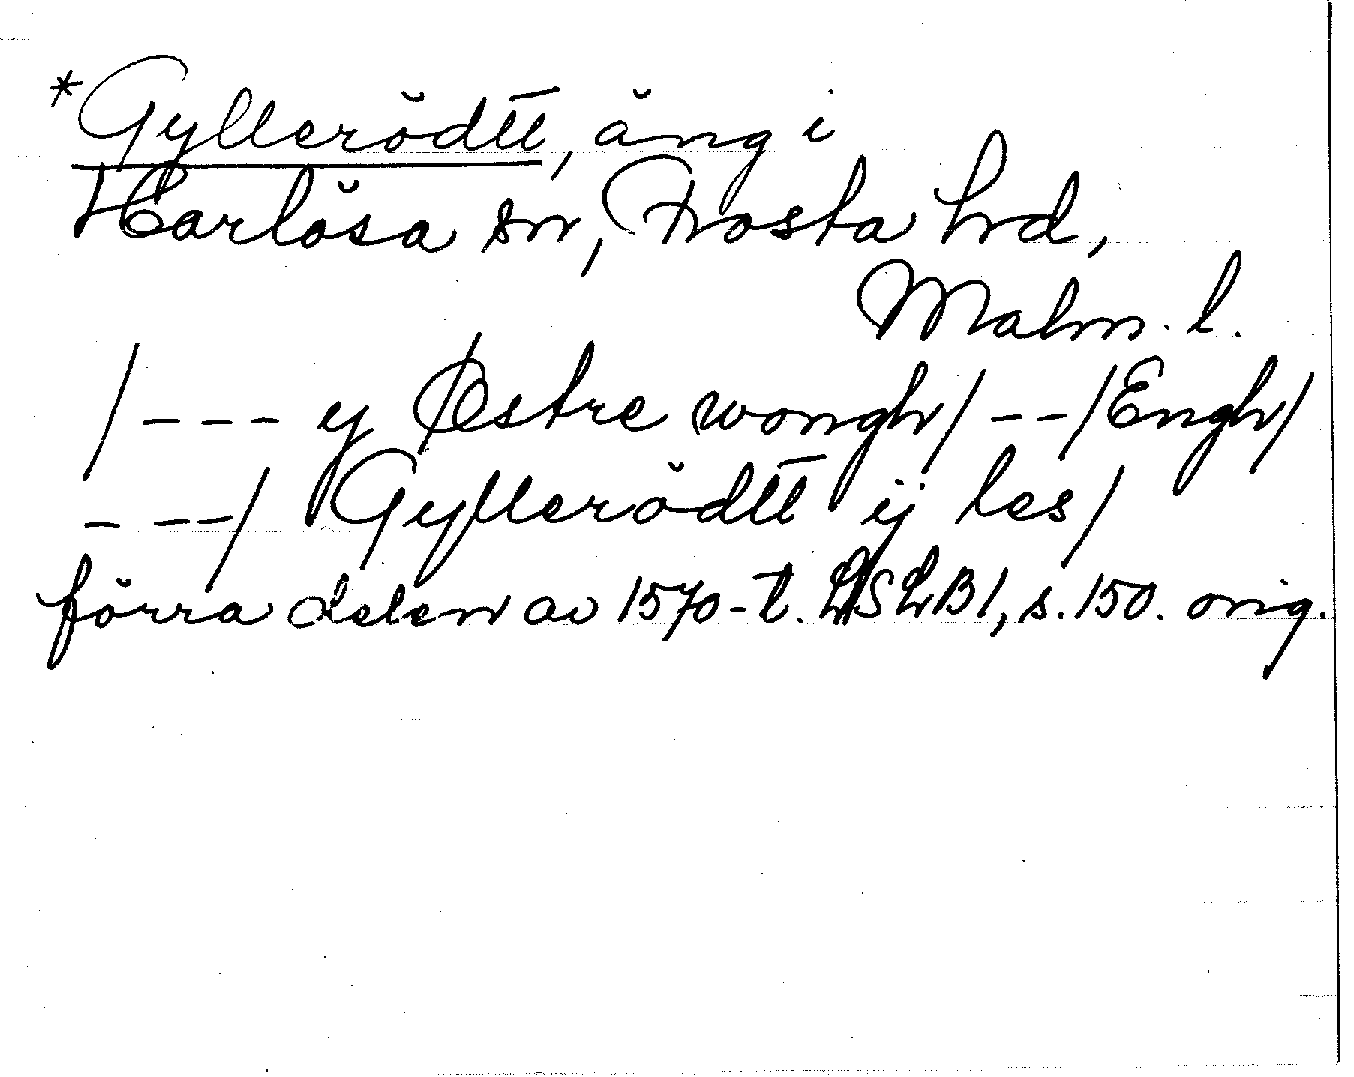 *Gyllerödtt, äng i
Harlösa sn, Frosta hrd,
Malm. l.
/--- y Østre wongh/ --/Engh/
---/ Gyllerödtt ij les/
förra delen av 1570-t. LSLB1, s. 150. orig.